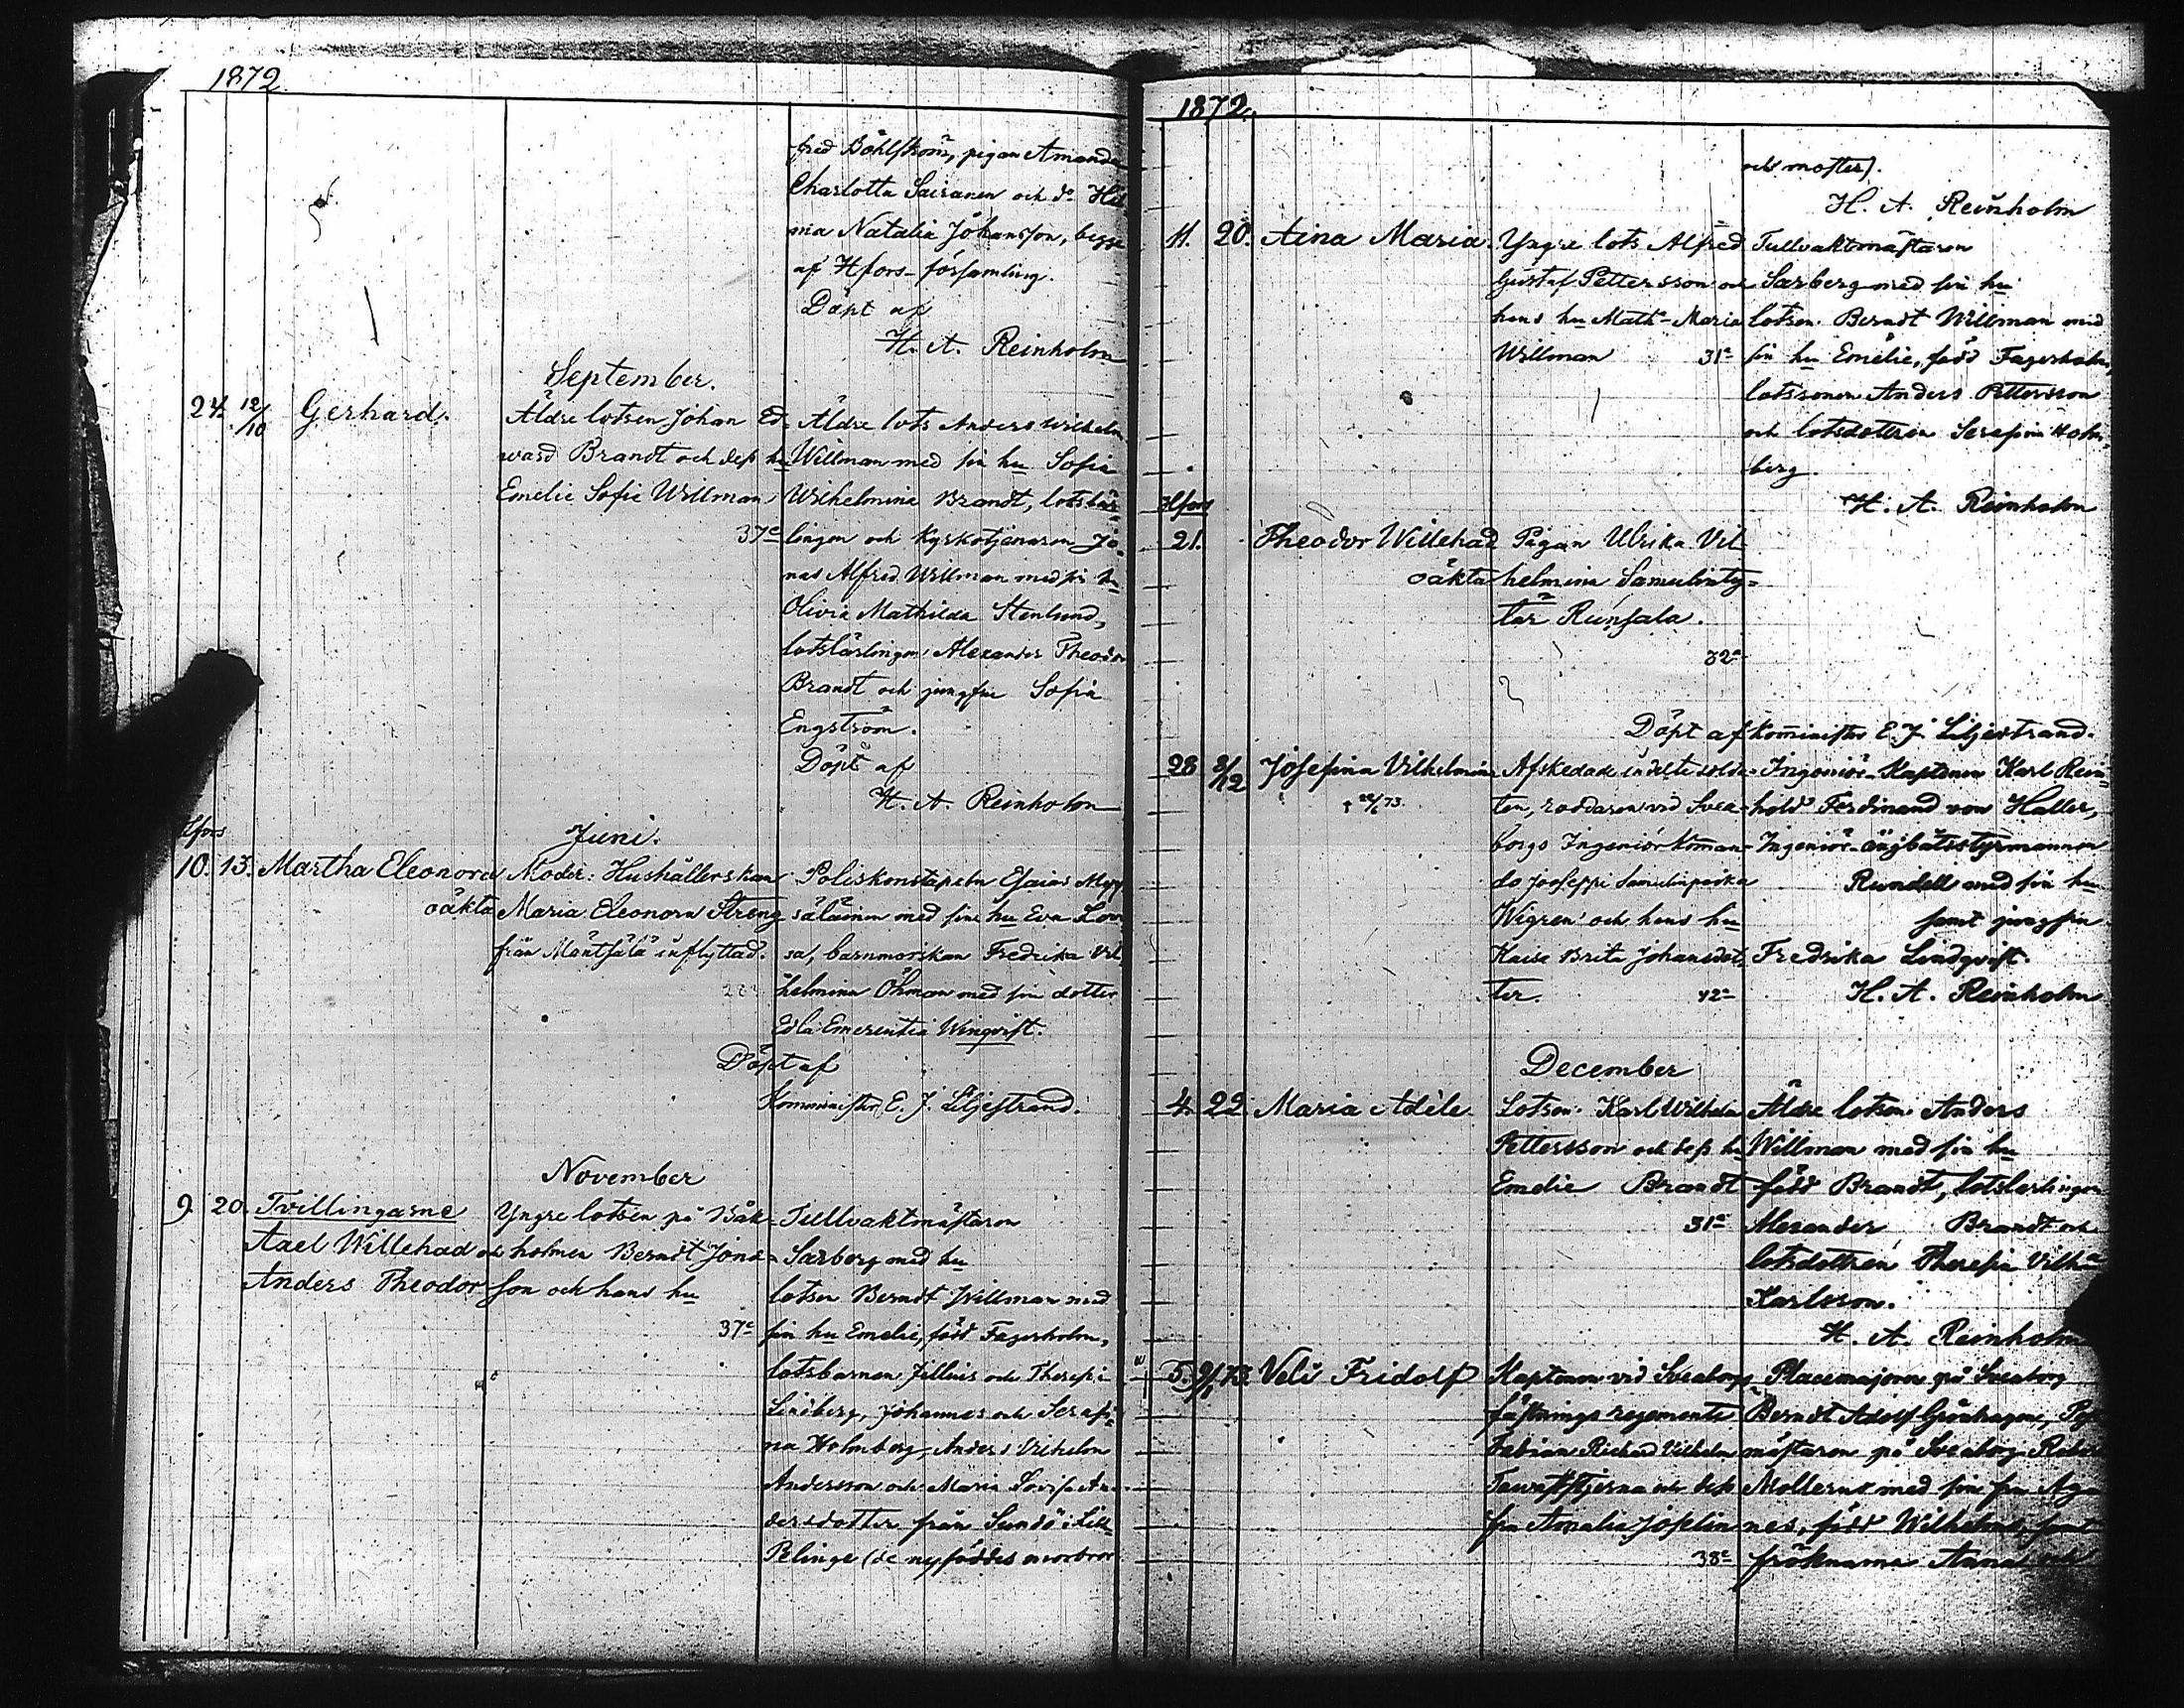 1872
fred Böhlström, pigan Amanda
Charlotta Sairanen och do Hil
ma Natalia Johansson, begge
af Hfors församling.
Döpt af
H. A. Reinholm
September.
24. 12/10 Gerhard.
Äldre lotsen Johan Ed-
vard Brandt och dess hu
Emelie Sofie Willman
37e
Äldre lots Anders Wilhelm
Willman med sin hu Sofia
Wilhelmina Brandt, lotslär-
lingen och kyrkotjenaren Jo-
nas Alfred Willman med sin hu
Olivia Mathilda Stenlund,
lotslärlingen Alexander Theodor
Brandt och jungfru Sofia
Engström.
Döpt af
H. A. Reinholm
Hfors
Juni.
10. 13. Martha Eleonora
oäkta
Moder: Hushållerskan
Maria Eleonora Streng
från Mäntsälä inflyttad.
Poliskonstapeln Esaias
säläinen med sin hu Eva Lovi
sa, barnmorskan Fredrika Vil
helmina Öhman med sin dotter
Edla Emerentia Winqvist.
Döpt af
Kommnister E. J. Liljestrand.
November
9. 20. Tvillingarne
Axel Willehad och
Anders Theodor
Yngre lotsen på Båk-
holmen Berndt Jons-
son och hans hu
37e
Tullvaktmästaren
Sarberg med hu
lotsen Berndt Willman med
sin hu Emelie, född Fagerholm,
lotsbarnen Jillius och Theresi
Lindberg, Johannes och Serafi-
na Holmberg, Anders Vilhelm
Andersson och Maria Lovisa An-
dersdotter från Sundö i Lill
Pelinge (de nyföddes morbror
1872.
och moster).
H. A. Reinholm
11. 20. Aina Maria.
Yngre lots Alfred
Gustaf Pettersson och
hans hu Math. Maria
Willman 31e
Tullvaktmästaren
Sarberg med sin hu
lotsen Berndt Willman med
sin hu Emelie, född Fagerholm,
lotssonen Anders Pettersson
och lotsdottren Serafina Holm
berg.
H. A. Reinholm
Hfors
21. Theodor Willehad
oäkta
Pigan Ulrika Vil
helmina Samulinty-
tär Runsala.
32e
Döpt af kominister E. J. Liljestrand.
28 8/12 Josefina Vilhelmina
Afskedade indelte solda-
ten, roddaren vid Svea-
borgs Ingeniörkoman-
do Jooseppi Samulinpoika
Wigren och hans hu
Kaisa Brita Johansdot-
ter. 42e
Ingeniör-Kaptenen Karl Rein-
hold Ferdinand von Haller,
Ingeniör-ångbåtsstyrmannen
Rundell med sin hu
samt jungfru
Fredrika Lindqvist.
H. A. Reinholm
December
4. 22. Maria Adèle.
Lotsen Karl Wilhelm
Pettersson och dess hu
Emelie Brandt
31e
Äldre lotsen Anders
Willman med sin hu
född Brandt, lotslärlingen
Alexander Brandt och
lotsdottren Theresia Vilha
Karlsson.
H. A. Reinholm
5. 9/1 73. Veli Fridolf
Kaptenen vid Sveaborgs
fästnings regemente
Fabian Richard Vilhelm
Tawaststjerna och dess
fru Amalia Josefin
38e
Placemajoren på Sveaborg
Berndt Adolf Grönhagen, Post
mästaren på Sveaborg Robert
Mollerus med sin fru Ag
nes, född Wilhelms, samt
fröknarna Anna och